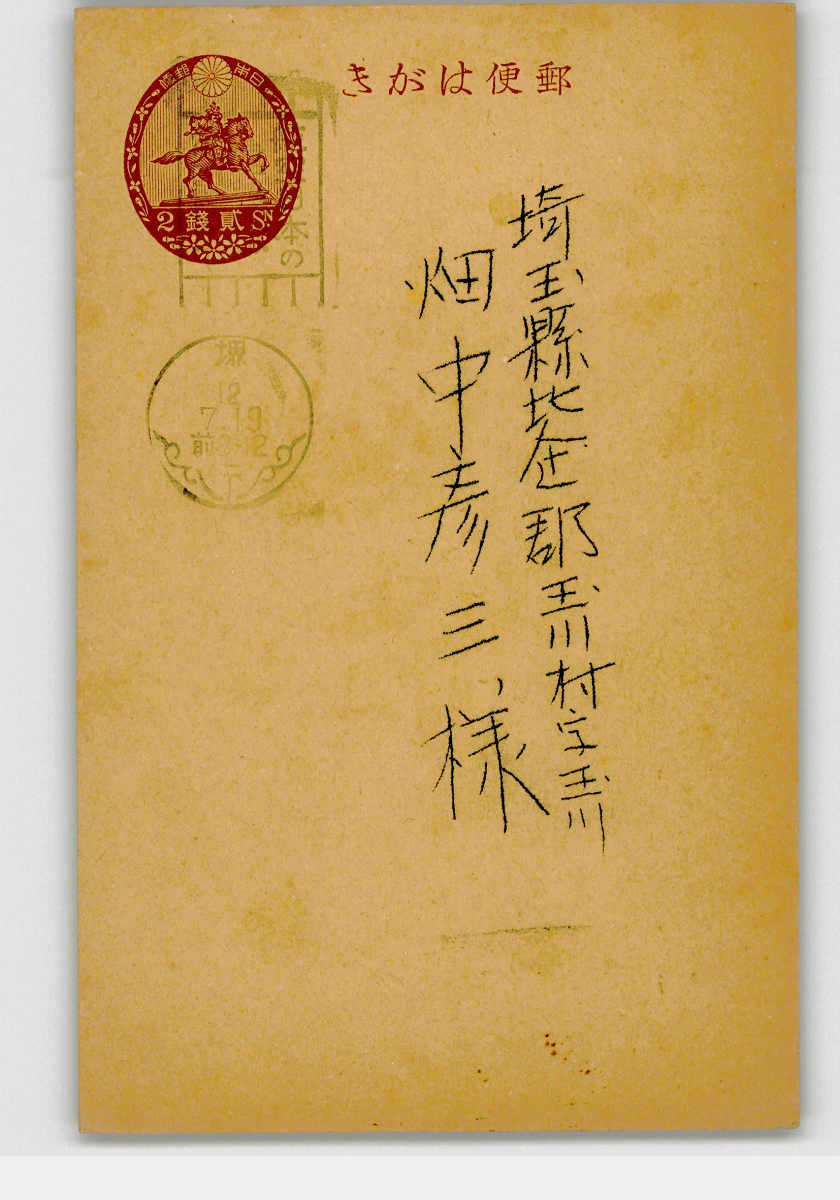 きがは便郵
日本郵便
2 錢貳 SN
本の
堺
12
7.19
前8-12
埼玉縣比企郡玉川村字玉川
畑中彦三様